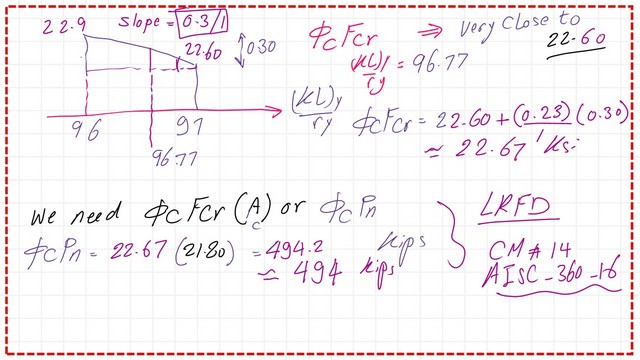 22.9 slope = 0.3/1
22.60
0.30
96 97
96.77
(KL)y/ry
ϕcFcr ⇒ very close to
22.60
(KL)y/ry = 96.77
ϕcFcr = 22.60 + (0.23)/1 (0.30)
≈ 22.67 Ksi
We need ϕcFcr (A) or ϕcPn
ϕcPn = 22.67 (21.80) = 494.2 kips
≈ 494 kips
LRFD
CM # 14
AISC-360-16